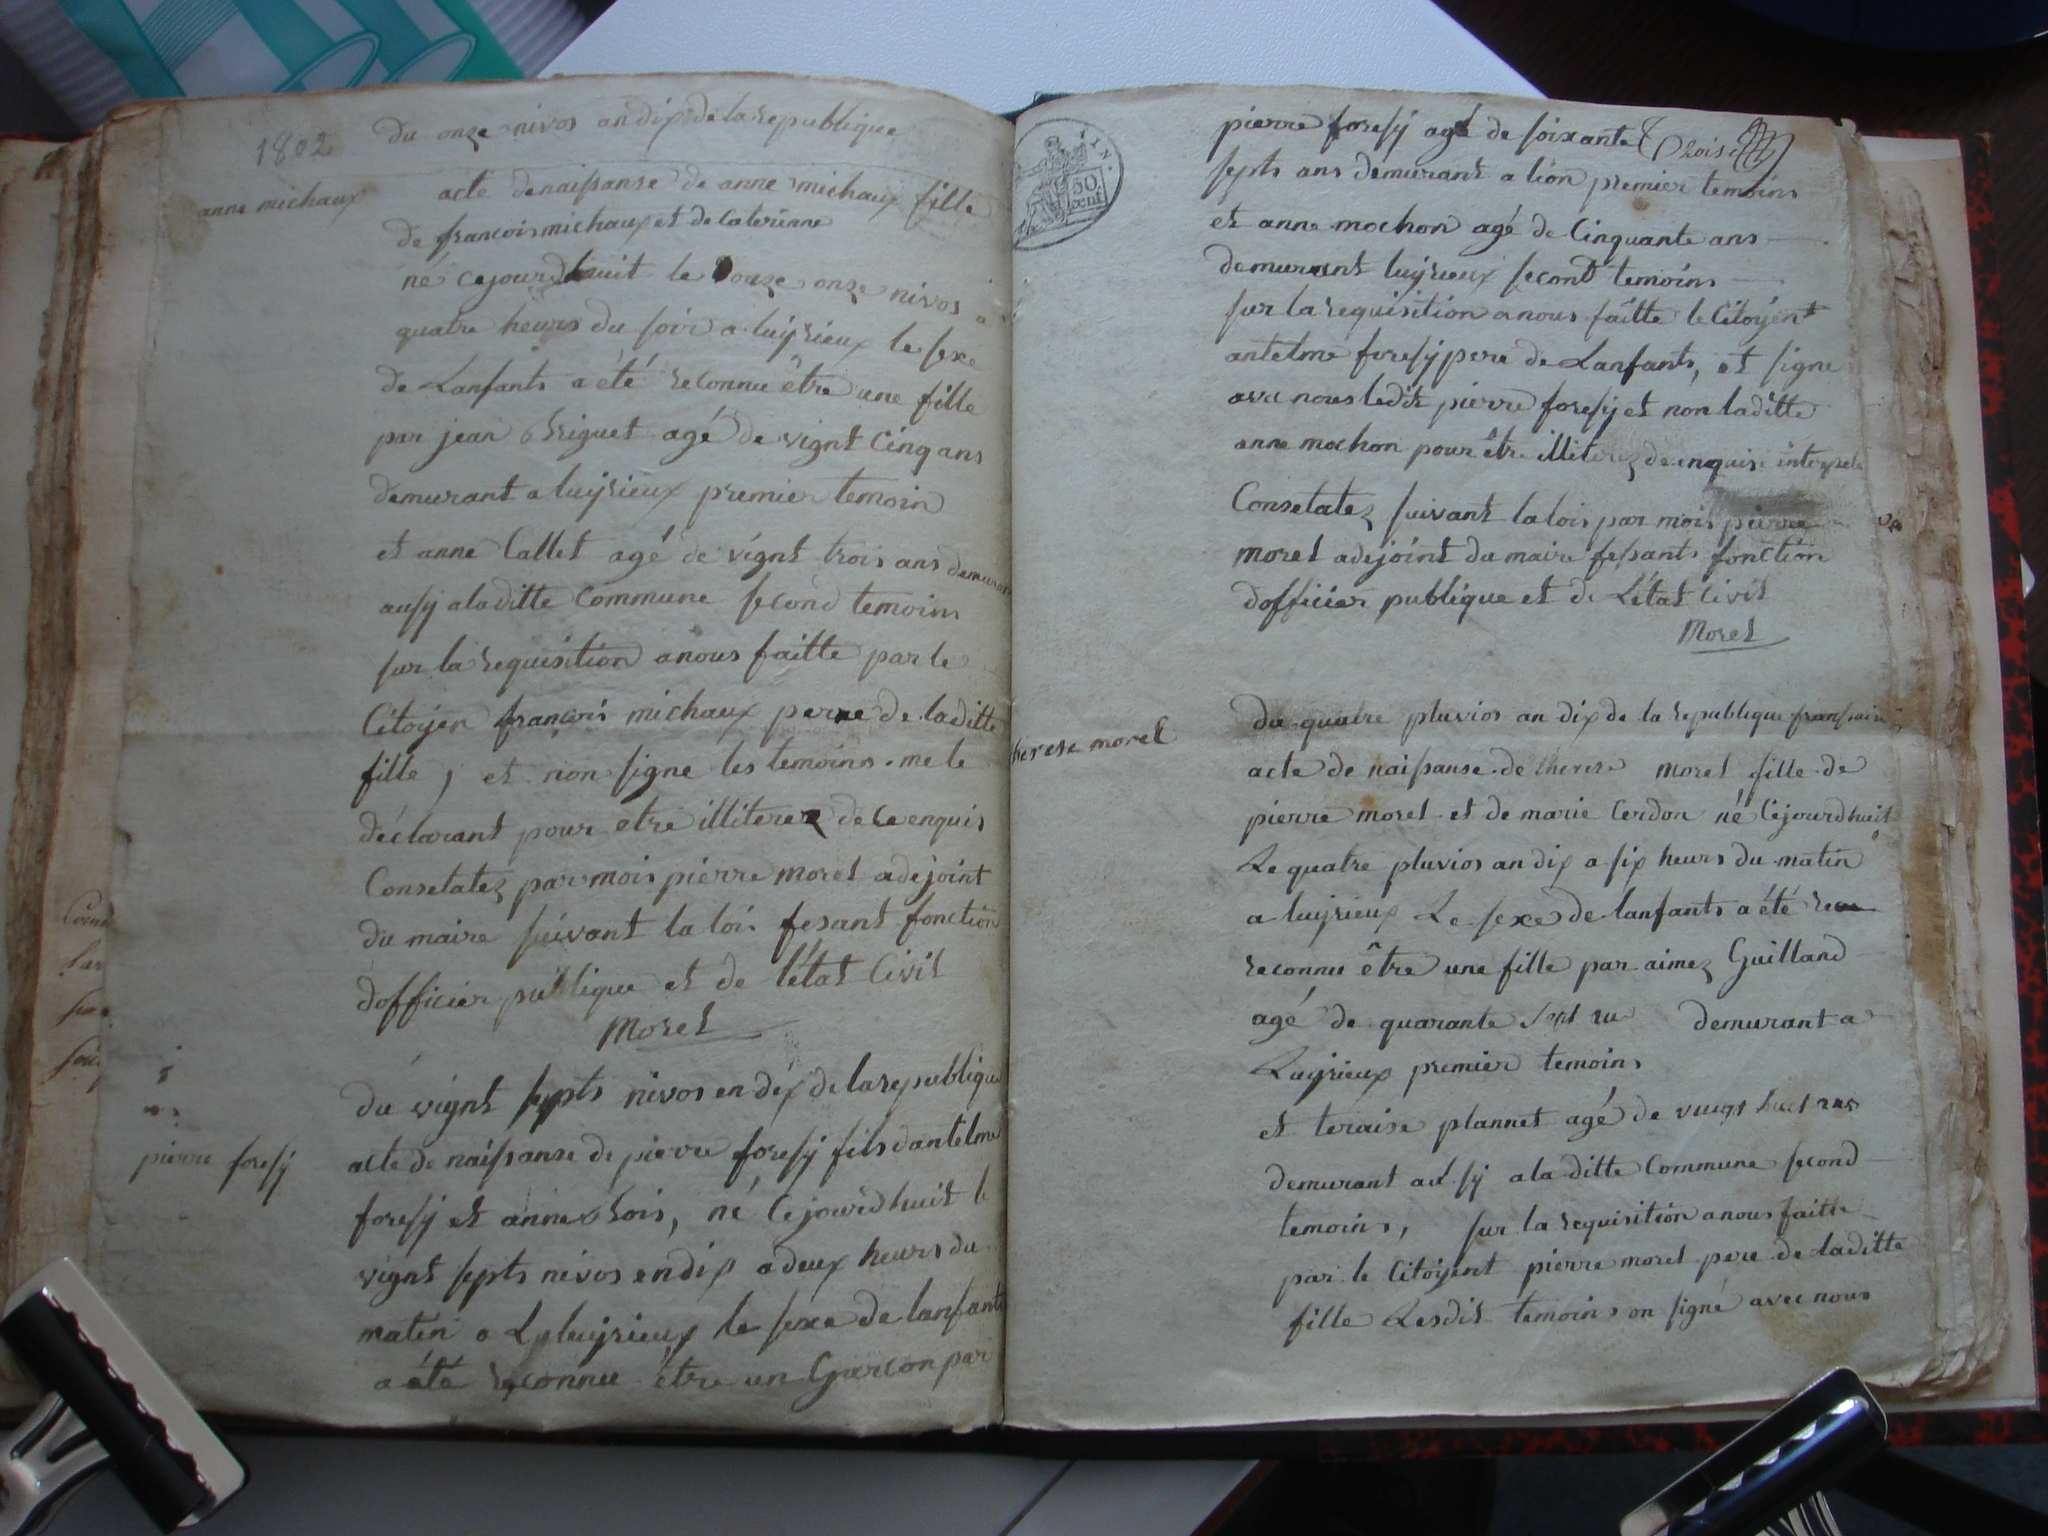 1802
du onze nivos an dix de la republique
anne michaux
acte de naissanse de anne michaux fille
de francois michaux et de Caterinne
né cejourdhuit le onze nivos a
quatre heurs du soir a luyrieux le sexe
de Lanfants a été reconnu être une fille
par jean agé de vignt Cinq ans
demurant a luyrieux premier temoin
et anne Callet agé de vignt trois ans demurant
aussy a laditte Commune second temoins
sur la requisition a nous faitte par le
Citoyen francois michaux perre de laditte
fille, et non signe les temoins me le
déclarant pour etre illiterez de ce enquis
Consetatez par mois pierre morel adejoint
du maire suivant la loi fesant fonction
dofficier publique et de létat Civil
Morel
du vignt septs nivos en dix de la republique
pierre foresy
acte de naissanse de pierre foresy fils dantelme
foresy et anne, né Cejourdhuit le
vignt septs nivos en dix a deux heurs du
matin a Luyrieux le sexe de lanfants
a été reconnu être un Garcon par
50
cent
pierre foresy agé de soixante
septs ans demurant a lion premier temoins
et anne mochon agé de Cinquante ans
demurant luyrieux second temoins
sur la requisition a nous faitte le Citoyent
antelme foresy pere de Lanfants, et signe
avec nous ledit pierre foresy et non laditte
anne mochon pour être illiterez de enquis
Consetatez suivant la lois par mois pierre
morel adejoint du maire fesants fonction
dofficier publique et de Létat Civil
Morel
du quatre pluvios an dix de la republique fransaise
therese morel
acte de naissanse de therese morel fille de
pierre morel et de marie Cerdon né Cejourdhuit
Le quatre pluvios an dix a six heurs du matin
a luyrieux Le sexe de lanfants a été
reconnu être une fille par aimez Guilland
agé de quarante sept demurant a
Luyrieux premier temoins
et teraise plannet agé de vingt huit ans
demurant ausy a la ditte Commune second
temoins, sur la requisition a nous faitte
par le Citoyent pierre morel pere de laditte
fille Lesdit temoins on signé avec nous